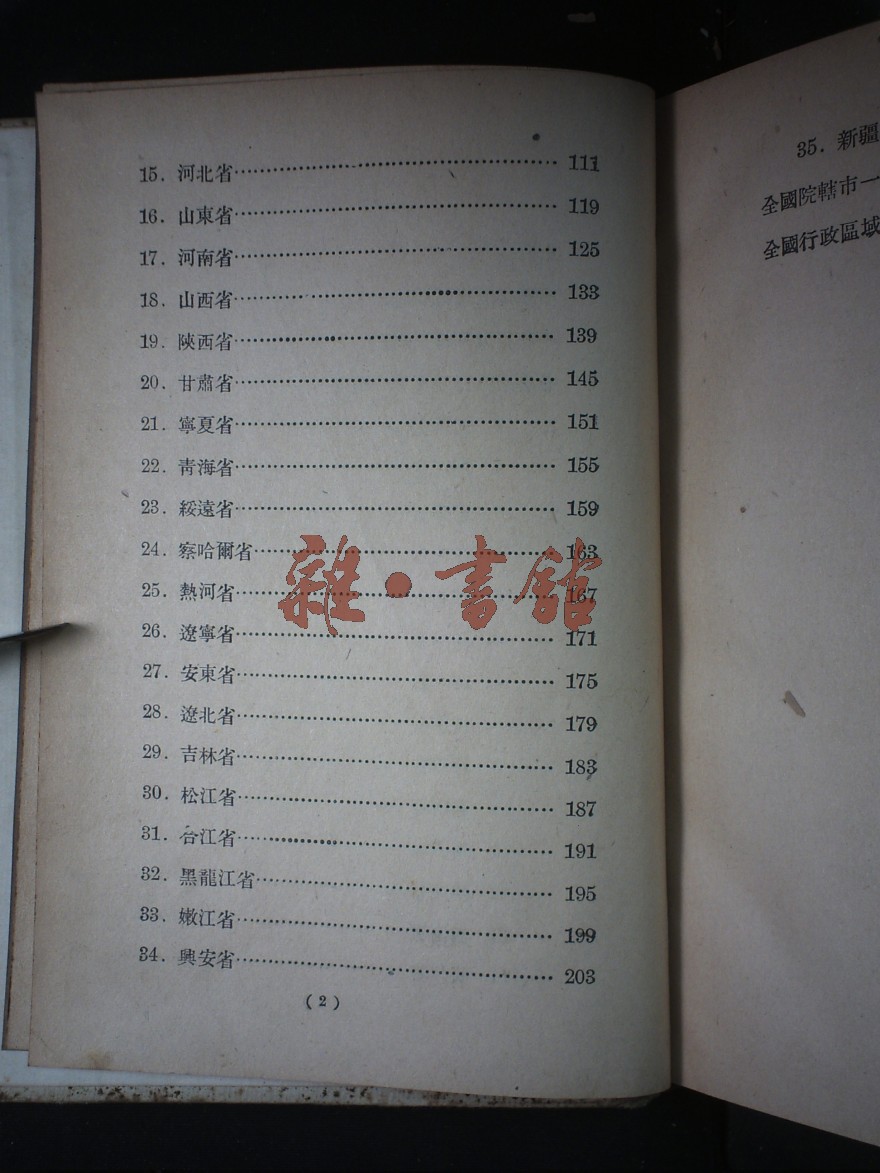 15. 河北省 111
16. 山東省 119
17. 河南省 125
18. 山西省 133
19. 陝西省 139
20. 甘肅省 145
21. 寧夏省 151
22. 靑海省 155
23. 綏遠省 159
24. 察哈爾省 163
25. 熱河省 167
26. 遼寧省 171
27. 安東省 175
28. 遼北省 179
29. 吉林省 183
30. 松江省 187
31. 合江省 191
32. 黑龍江省 195
33. 嫩江省 199
34. 興安省 203
(2)
雜·書館
35. 新疆
全國院轄市一
全國行政區域